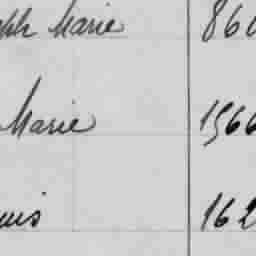 eph Marie 860
Marie 1566
uis 162